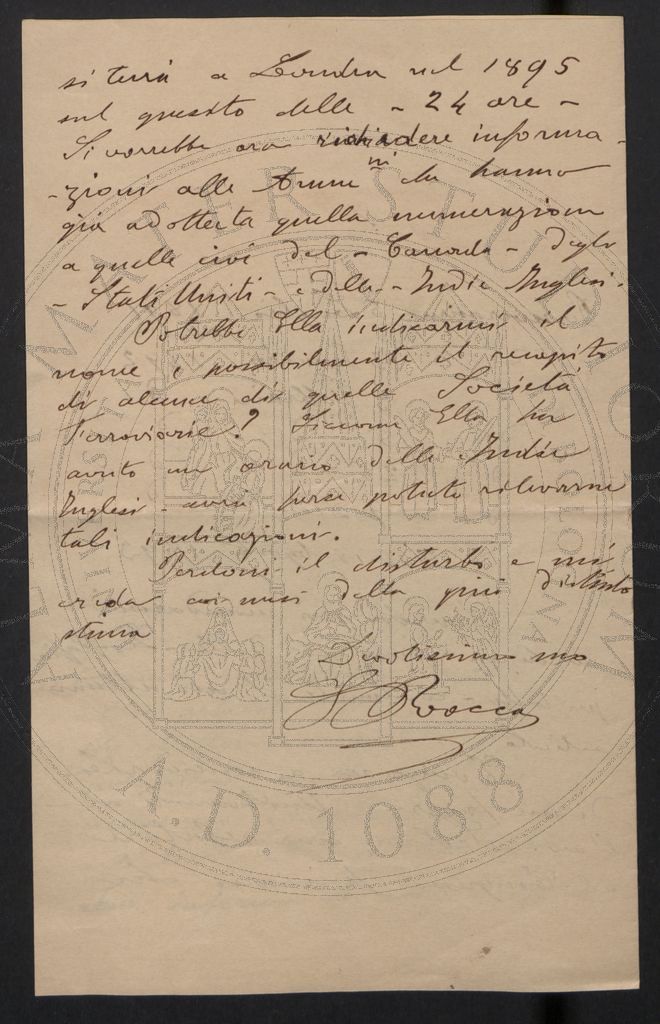 si terrà a Londra nel 1895
sul quesito delle - 24 ore -
Si vorrebbe ora richiedere informa-
-zioni alle Amm.ni che hanno
già adottata quella numerazione
a quelle cioè del - Canada - degli
- Stati Uniti - e delle - Indie Inglesi.
Potrebbe Ella indicarmi il
nome e possibilmente il recapito
di alcune di quelle Società
Ferroviarie? Siccome Ella ha
avuto un orario delle Indie
Inglesi - avrà forse potuto rilevarne
tali indicazioni.
Perdoni il disturbo e mi
creda coi sensi della più distinta
stima
Devotissimo suo
Rocca
ALMA MATER STUDIORUM
A.D. 1088